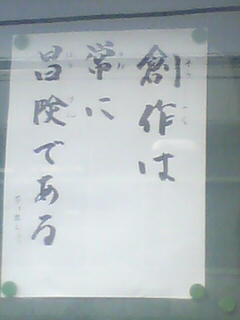 創作は
常に
冒険である